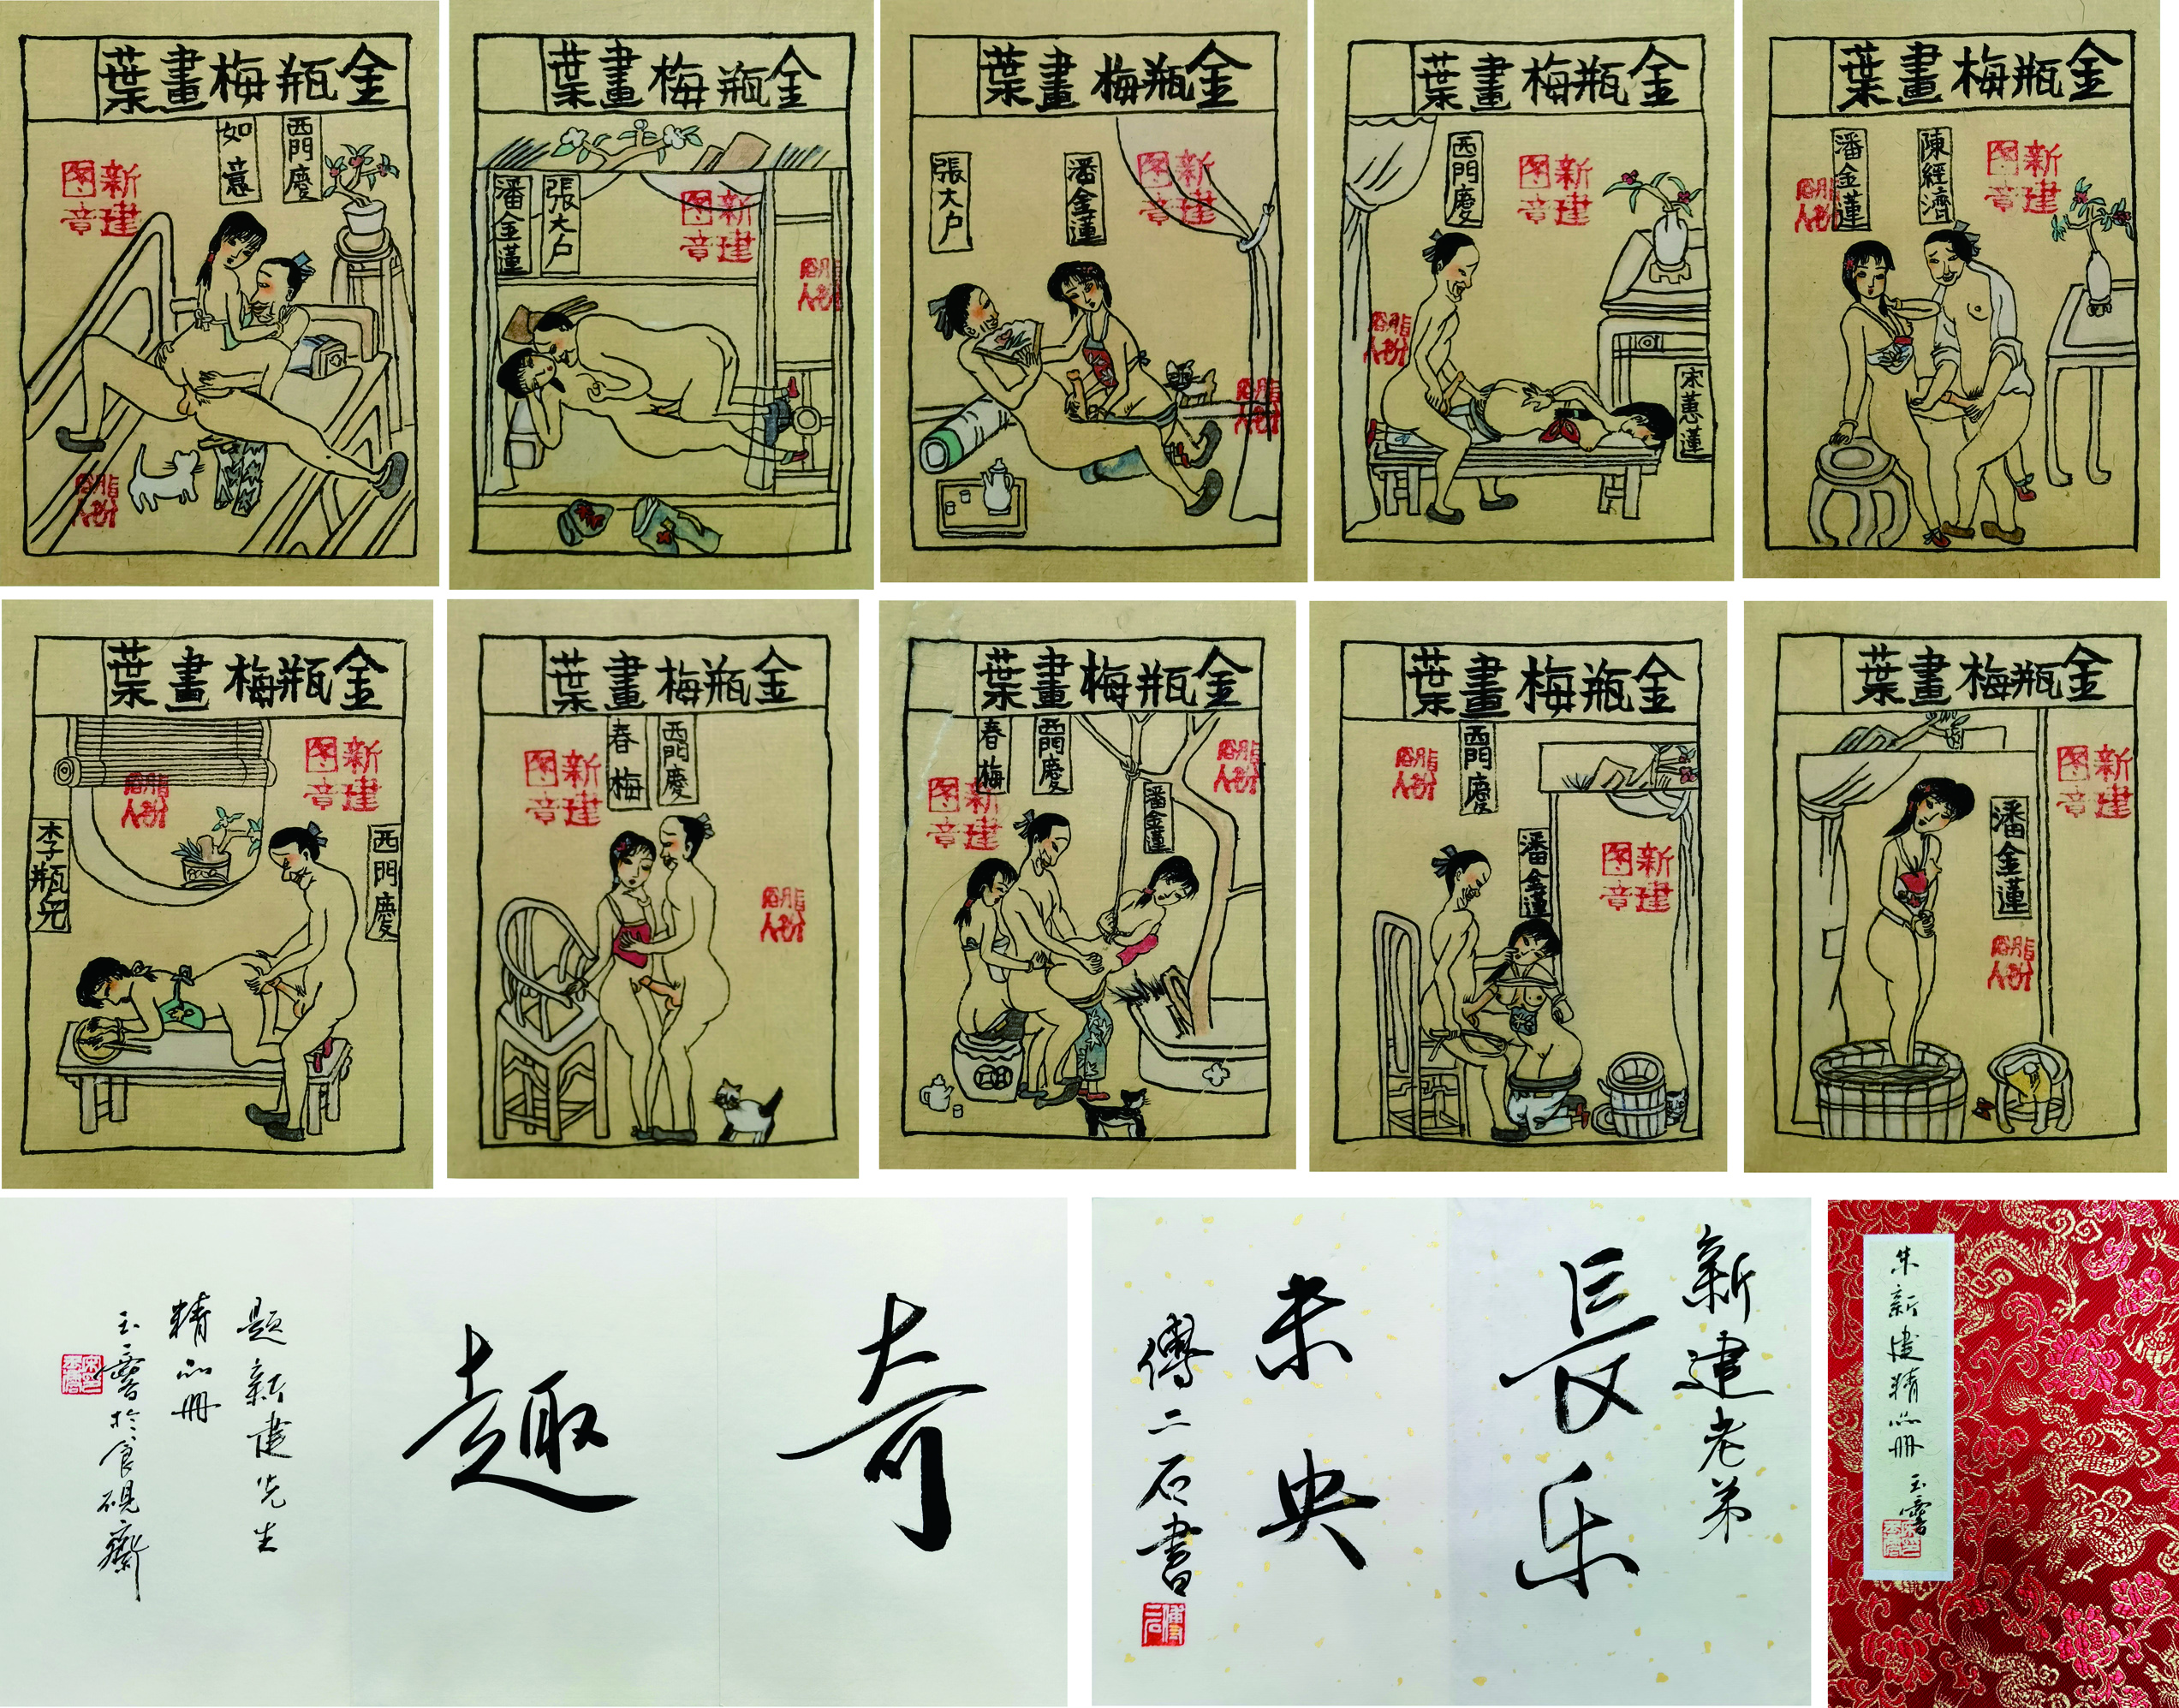 金瓶梅畫葉
西門慶
如意
新建图章
金瓶梅畫葉
張大户
潘金蓮
新建图章
金瓶梅畫葉
潘金蓮
張大户
新建图章
金瓶梅畫葉
西門慶
宋蕙蓮
新建图章
金瓶梅畫葉
陳經濟
潘金蓮
新建图章
金瓶梅畫葉
西門慶
李瓶兒
新建图章
金瓶梅畫葉
西門慶
春梅
新建图章
金瓶梅畫葉
潘金蓮
西門慶
春梅
新建图章
金瓶梅畫葉
西門慶
潘金蓮
新建图章
金瓶梅畫葉
潘金蓮
新建图章
奇
趣
题新建先生
精品册
玉麐於食硯齋
新建老弟
長乐
未央
傅二石書
傅二石
朱新建精品册 玉麐